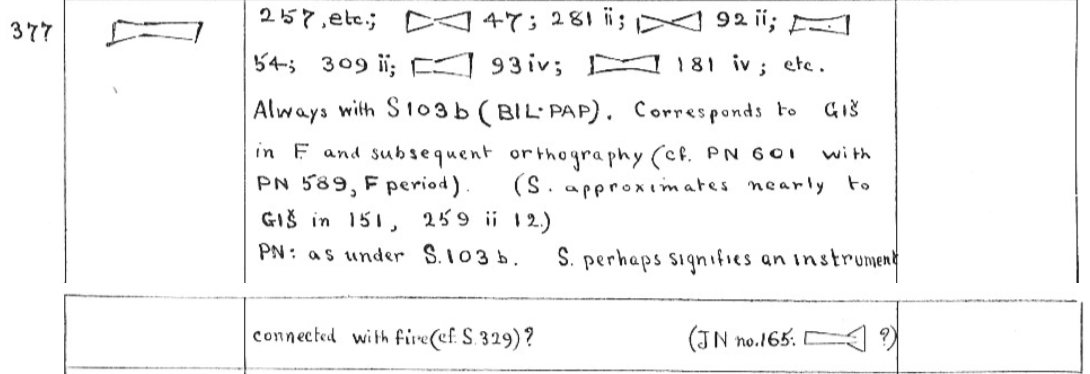 377
257, etc.; 47; 281 ii; 92 ii;
54; 309 ii; 93 iv; 181 iv; etc.
Always with S103b (BIL·PAP). Corresponds to GIŠ
in F and subsequent orthography (cf. PN 601 with
PN 589, F period). (S. approximates nearly to
GIŠ in 151, 259 ii 12.)
PN: as under S.103b. S. perhaps signifies an instrument
connected with fire (cf. S.329)? (JN no.165: ?)